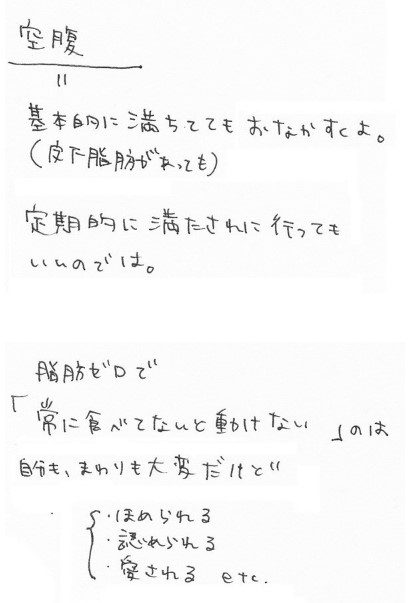 空腹
〃
基本的に満ちてても おなかすくよ。
(皮下脂肪があっても)
定期的に満たされに行っても
いいのでは。
脂肪ゼロで
「常に食べてないと動けない」のは
自分も、まわりも大変だけど〃
・ほめられる
・認められる
・愛される etc.